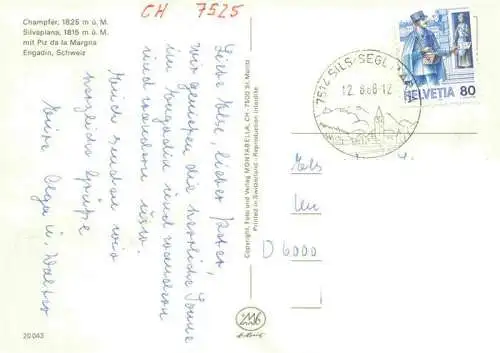 Champfèr, 1825 m ü. M.
Silvaplana, 1815 m ü. M.
mit Piz da la Margna
Engadin, Schweiz
CH 7525
Liebe Else, lieber Peter,
wir geniessen die herrliche Sonne
im Engadin und wandern
und wandern usw.
Euch senden wir
herzliche Grüße
Eure Olga u. Walter
20 043
Copyright, Foto und Verlag MONTABELLA, CH-7500 St. Moritz
Printed in Switzerland - Reproduction interdite
7514 SILS-SEGL
12.8.88-12
HELVETIA 80
Els
D 6000